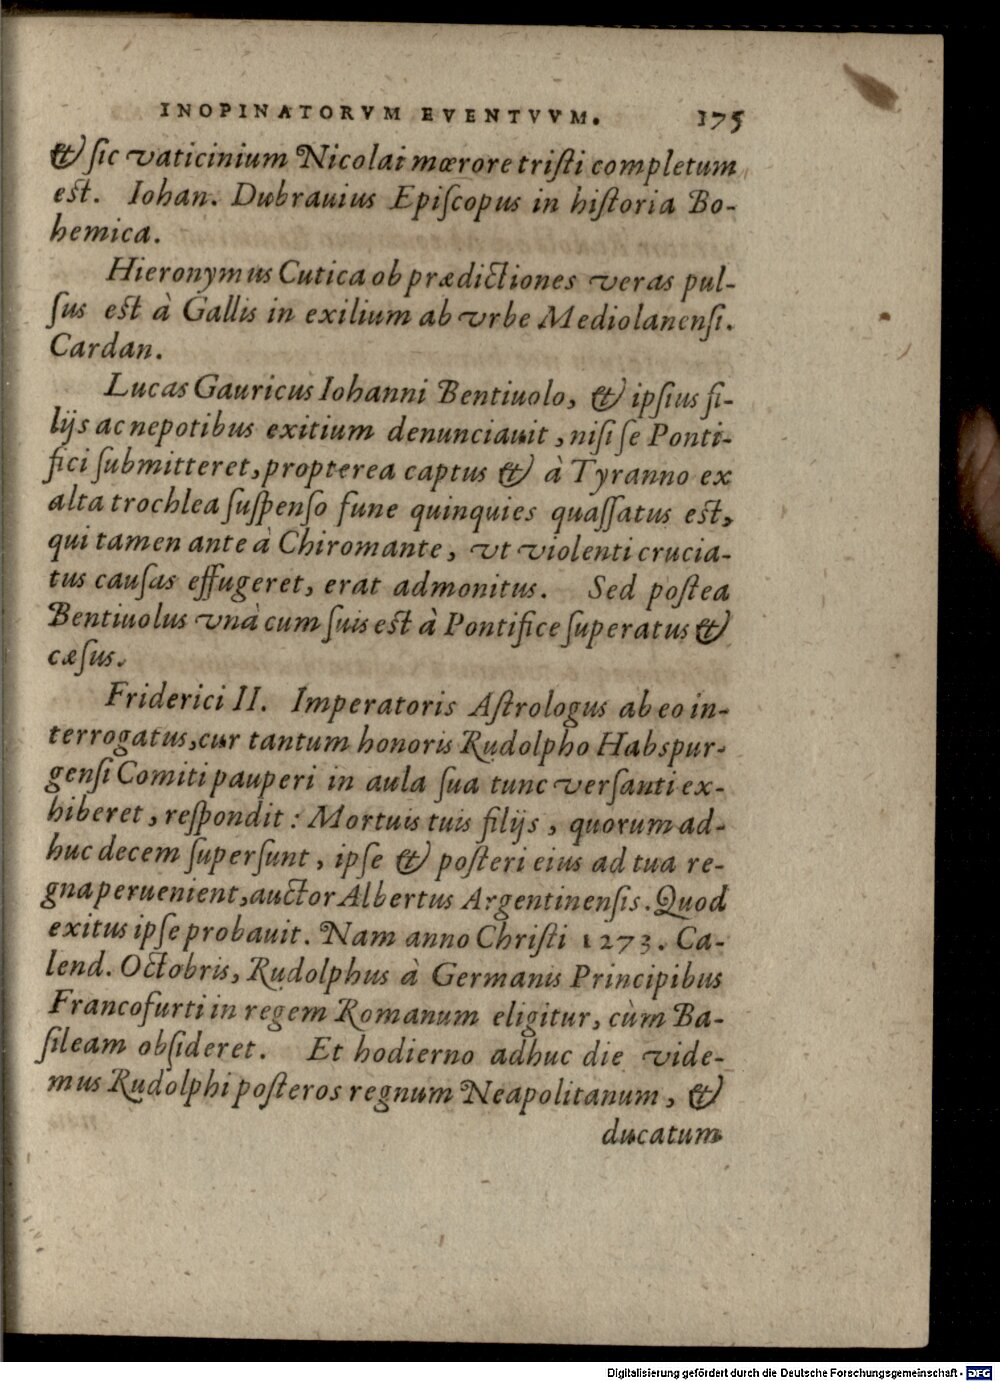 INOPINATORVM EVENTVVM. 175
& sic vaticinium Nicolai mœrore tristi completum
est. Iohan. Dubrauius Episcopus in historia Bo-
hemica.
Hieronymus Cutica ob prædictiones veras pul-
sus est à Gallis in exilium ab vrbe Mediolanensi.
Cardan.
Lucas Gauricus Iohanni Bentiuolo, & ipsius fi-
lijs ac nepotibus exitium denunciauit, nisi se Ponti-
fici submitteret, propterea captus & à Tyranno ex
alta trochlea suspenso fune quinquies quassatus est,
qui tamen ante à Chiromante, vt violenti crucia-
tus causas effugeret, erat admonitus. Sed postea
Bentiuolus vnà cum suis est à Pontifice superatus &
cæsus.
Friderici II. Imperatoris Astrologus ab eo in-
terrogatus, cur tantum honoris Rudolpho Habspur-
gensi Comiti pauperi in aula sua tunc versanti ex-
hiberet, respondit: Mortuis tuis filijs, quorum ad-
huc decem supersunt, ipse & posteri eius ad tua re-
gna peruenient, auctor Albertus Argentinensis. Quod
exitus ipse probauit. Nam anno Christi 1273. Ca-
lend. Octobris, Rudolphus à Germanis Principibus
Francofurti in regem Romanum eligitur, cùm Ba-
sileam obsideret. Et hodierno adhuc die vide-
mus Rudolphi posteros regnum Neapolitanum, &
ducatum
Digitalisierung gefördert durch die Deutsche Forschungsgemeinschaft - DFG